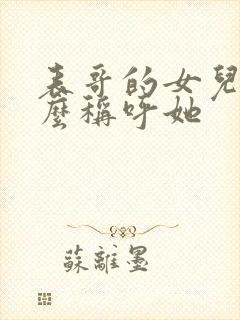 表哥的女兒
麼稱呼她
蘇離墨